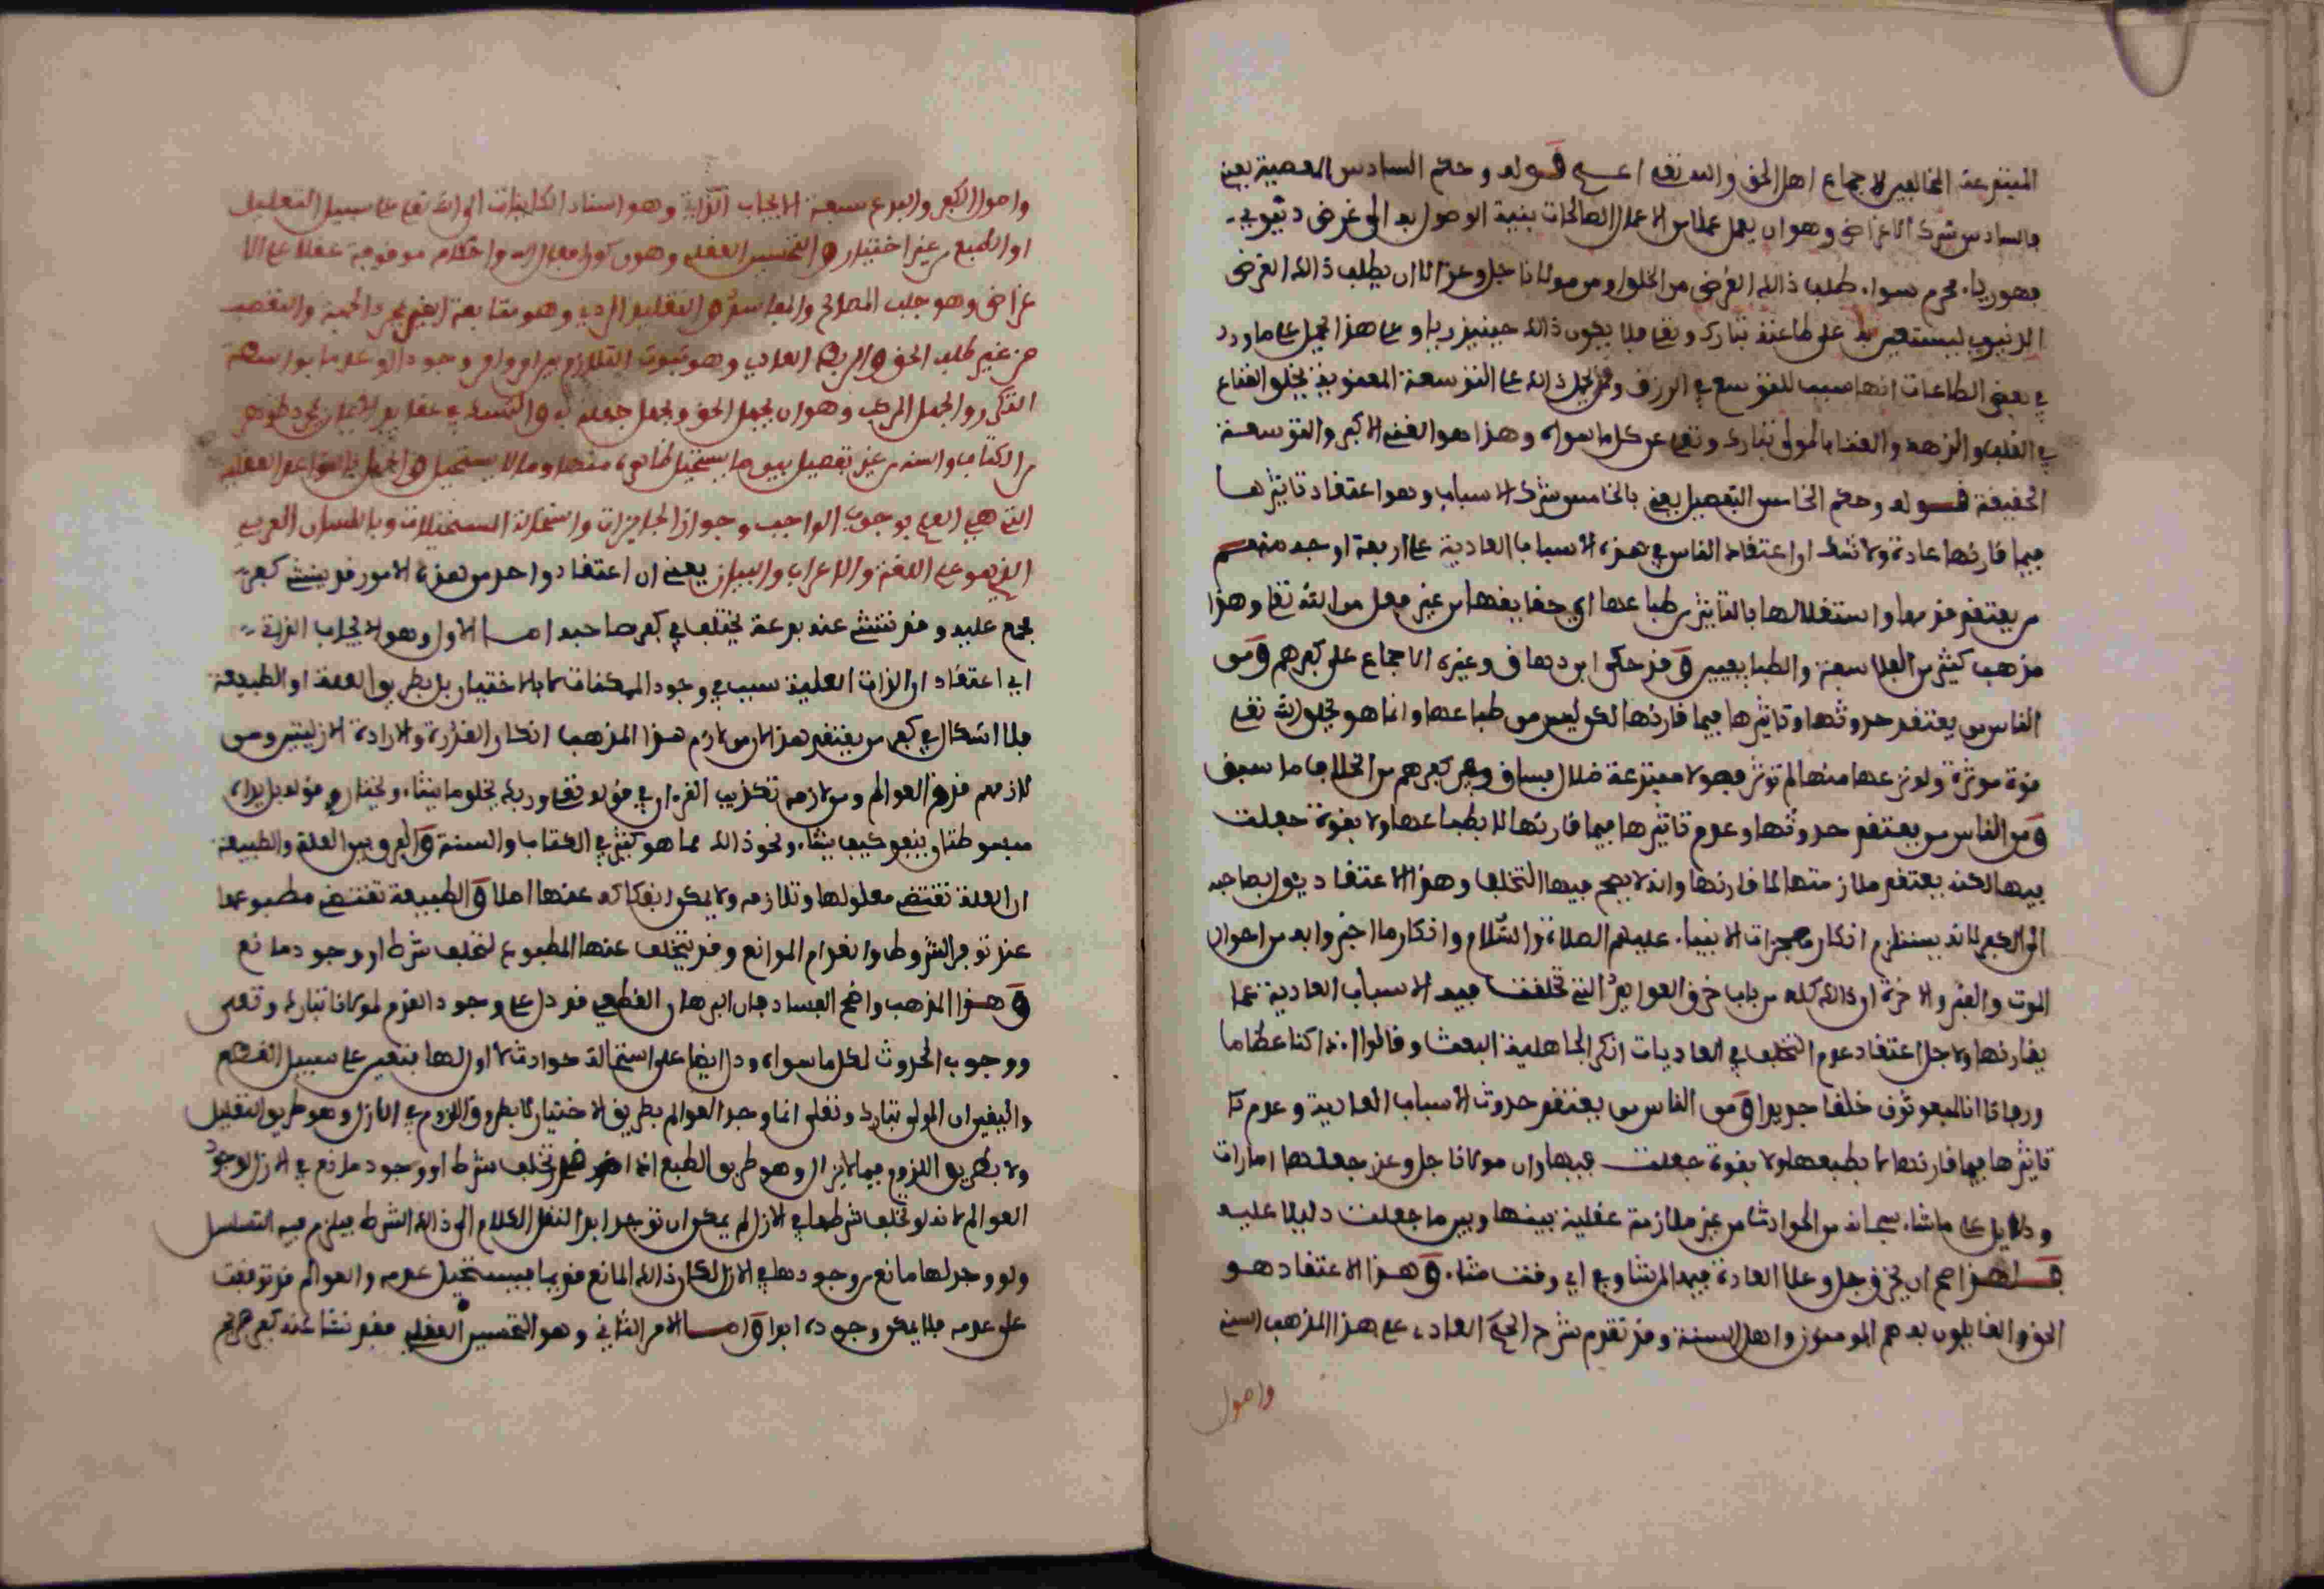 المبتدعة المخالفين لاجماع اهل الحق والله تعلى اعلم قوله وحكم السادس المعصية يعني
بالسادس شرك الاغراض وهو ان يعمل عملا من الاعمال الصالحات بنية الوصول به الى غرض دنيوي
فهو رياء محرم سواء طلب ذالك الغرض من الخلق او من مولانا جل وعز الا ان يطلب ذالك الغرض
الدنيوي ليستعين به على طاعته تبارك وتعلى فلا يكون ذالك حينيذ رياء وعلى هذا يحمل على ما ورد
في بعض الطاعات انها سبب للتوسع في الرزق وقد يحمل ذالك على التوسعة المعنوية بخلق القناع
في القلب والزهد والغنا بالمولى تبارك وتعلى عن كل ما سواه وهذا هو الغنى الاكبر والتوسعة
الحقيقة قوله وحكم الخامس التفصيل يعني بالخامس شرك الاسباب وهو اعتقاد تاثيرها
فيما قارنها عادة ولا شك ان اعتقاد الناس في هذه الاسباب العادية على اربعة اوجه منهم
من يعتقد قدمها واستقلالها بالتاثير من طباعها اي حقايقها من غير جعل من الله تعلى وهذا
مذهب كثير من الفلاسفة والطبايعيين وقد حكى ابن دهاق وغيره الاجماع على كفرهم ومن
الناس من يعتقد حدوثها وتاثيرها فيما قارنها لكن ليس من طباعها وانما هو بخلق الله تعلى
قوة موثرة ولو نزعها منها لم توثر فهولاء مبتدعة ضلال فساق وفي كفرهم من الخلاف ما سبق
ومن الناس من يعتقد حدوثها وعدم تاثيرها فيما قارنها لا بطباعها ولا بقوة جعلت
فيها لكنه يعتقد ملازمتها لما قارنها وانه لا يصح فيها التخلف وهذا الاعتقاد يئول بصاحبه
الى الكفر لانه يستلزم انكار معجزات الانبياء عليهم الصلاة والسلام وانكار ما اخبروا به من احوال
الموت والقبر والاخرة اذ ذالك كله من باب خرق العوايد التي تخلفت فيه الاسباب العادية عما
يقارنها ولاجل اعتقاد عدم التخلف في العاديات انكر الجاهلية البعث وقالوا اذا كنا عظاما
ورفاتا انا لمبعوثون خلقا جديدا ومن الناس من يعتقد حدوث الاسباب العادية وعدم تا
تاثيرها فيما قارنها لا بطبعها ولا بقوة جعلت فيها وان مولانا جل وعز جعلها امارات
ودلايل على ما شاء سبحانه من الحوادث من غير ملازمة عقلية بينها وبين ما جعلت دليلا عليه
فلهذا صح ان يخرق جل وعلا العادة فيها لمن شاء وفي اي وقت شاء وهذا الاعتقاد هو
الحق والقايلون به هم المومنون واهل السنة وقد تقدم شرح الحكم العادي على هذا المذهب السني
واصول
واصول الكفر والبدع سبعة الايجاب الذاتي وهو اسناد الكاينات الى الله تعلى على سبيل التعليل
او الطبع من غير اختيار والتحسين العقلي وهو كون افعال الله واحكامه موقوفة عقلا على الا
غراض وهو جلب المصالح والمفاسد والتقليد الردي وهو متابعة الغير لمجرد الحمية والتعصب
من غير طلب الحق والربط العادي وهو ثبوت التلازم بين امر وامر وجودا او عدما بواسطة
التكرر والجهل المركب وهو ان يجهل الحق ويجهل جهله به والتمسك في عقايد الايمان بمجرد ظواهر
من الكتاب والسنة من غير تفصيل بين ما يستحيل ظاهره منها وما لا يستحيل والجهل بالقواعد العقلية
التي هي العلم بوجوب الواجب وجواز الجايزات واستحالة المستحيلات وباللسان العربي
الذي هو علم اللغة والاعراب والبيان يعني ان اعتقاد واحد من هذه الامور قد ينشا كفر
مجمع عليه وقد تنشا عنه بدعة يختلف في كفر صاحبها اما الاول وهو الايجاب الذاتي
اي اعتقاد ان الذات العلية سبب في وجود الممكنات لا بالاختيار بل بطريق العلة او الطبيعة
فلا اشكال في كفر من يعتقد هذا لان من لازم هذا المذهب انكار القدرة والارادة الازليتين ومن
لازمهم قدم العوالم ومن لازمه تكذيب القرءان في قوله تعلى وربك يخلق ما يشاء ويختار وقوله بل يداه
مبسوطتان ينفق كيف يشاء ونحو ذالك مما هو كثير في الكتاب والسنة والفرق بين العلة والطبيعة
ان العلة تقتضي معلولها وتلازمه ولا يمكن انفكاكه عنها اصلا والطبيعة تقتضي مطبوعها
عند توفر الشروط وانعدام الموانع وقد يتخلف عنها المطبوع لتخلف شرط او وجود مانع
وهذا المذهب واضح الفساد فان البرهان القطعي قد دل على وجود القدم لمولانا تبارك وتعلى
ووجوب الحدوث لكل ما سواه ودل ايضا على استحالة حوادث لا اول لها فتعين على سبيل القطع
واليقين ان المولى تبارك وتعلى انما اوجد العوالم بطريق الاختيار لا بطريق اللزوم في الازل وهو طريق التعليل
ولا بطريق اللزوم فيما لا يزال وهو طريق الطبع اذا تخلف شرط او وجود مانع في الازل لوجود
العوالم لانه لو تخلف شرطها في الازل لم يمكن ان توجد ابدا لنقل الكلام الى ذالك الشرط فيلزم فيه التسلسل
ولو وجد لها مانع من وجودها في الازل لكان ذالك المانع قديما فيستحيل عدمه والعوالم قد توقفت
على عدمه فلا يمكن وجوده ابدا واما الامر الثاني وهو التحسين العقلي فقد نشا عنه كفر صريح